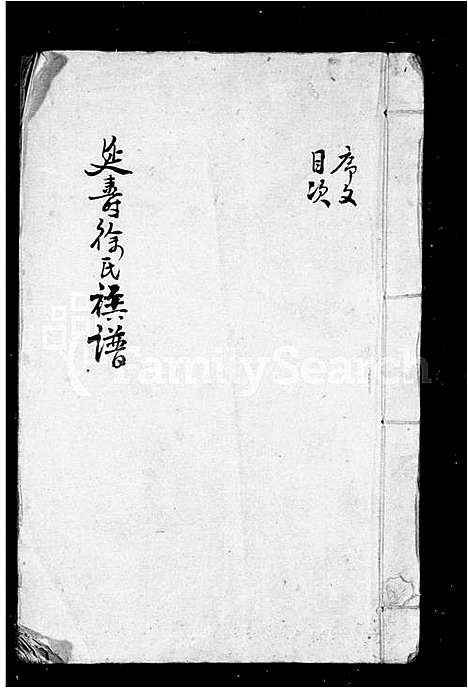 序文
目次
延壽徐氏族譜
FamilySearch